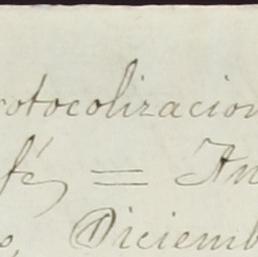 rotocolizacion
fé, = An
o, Diciemb